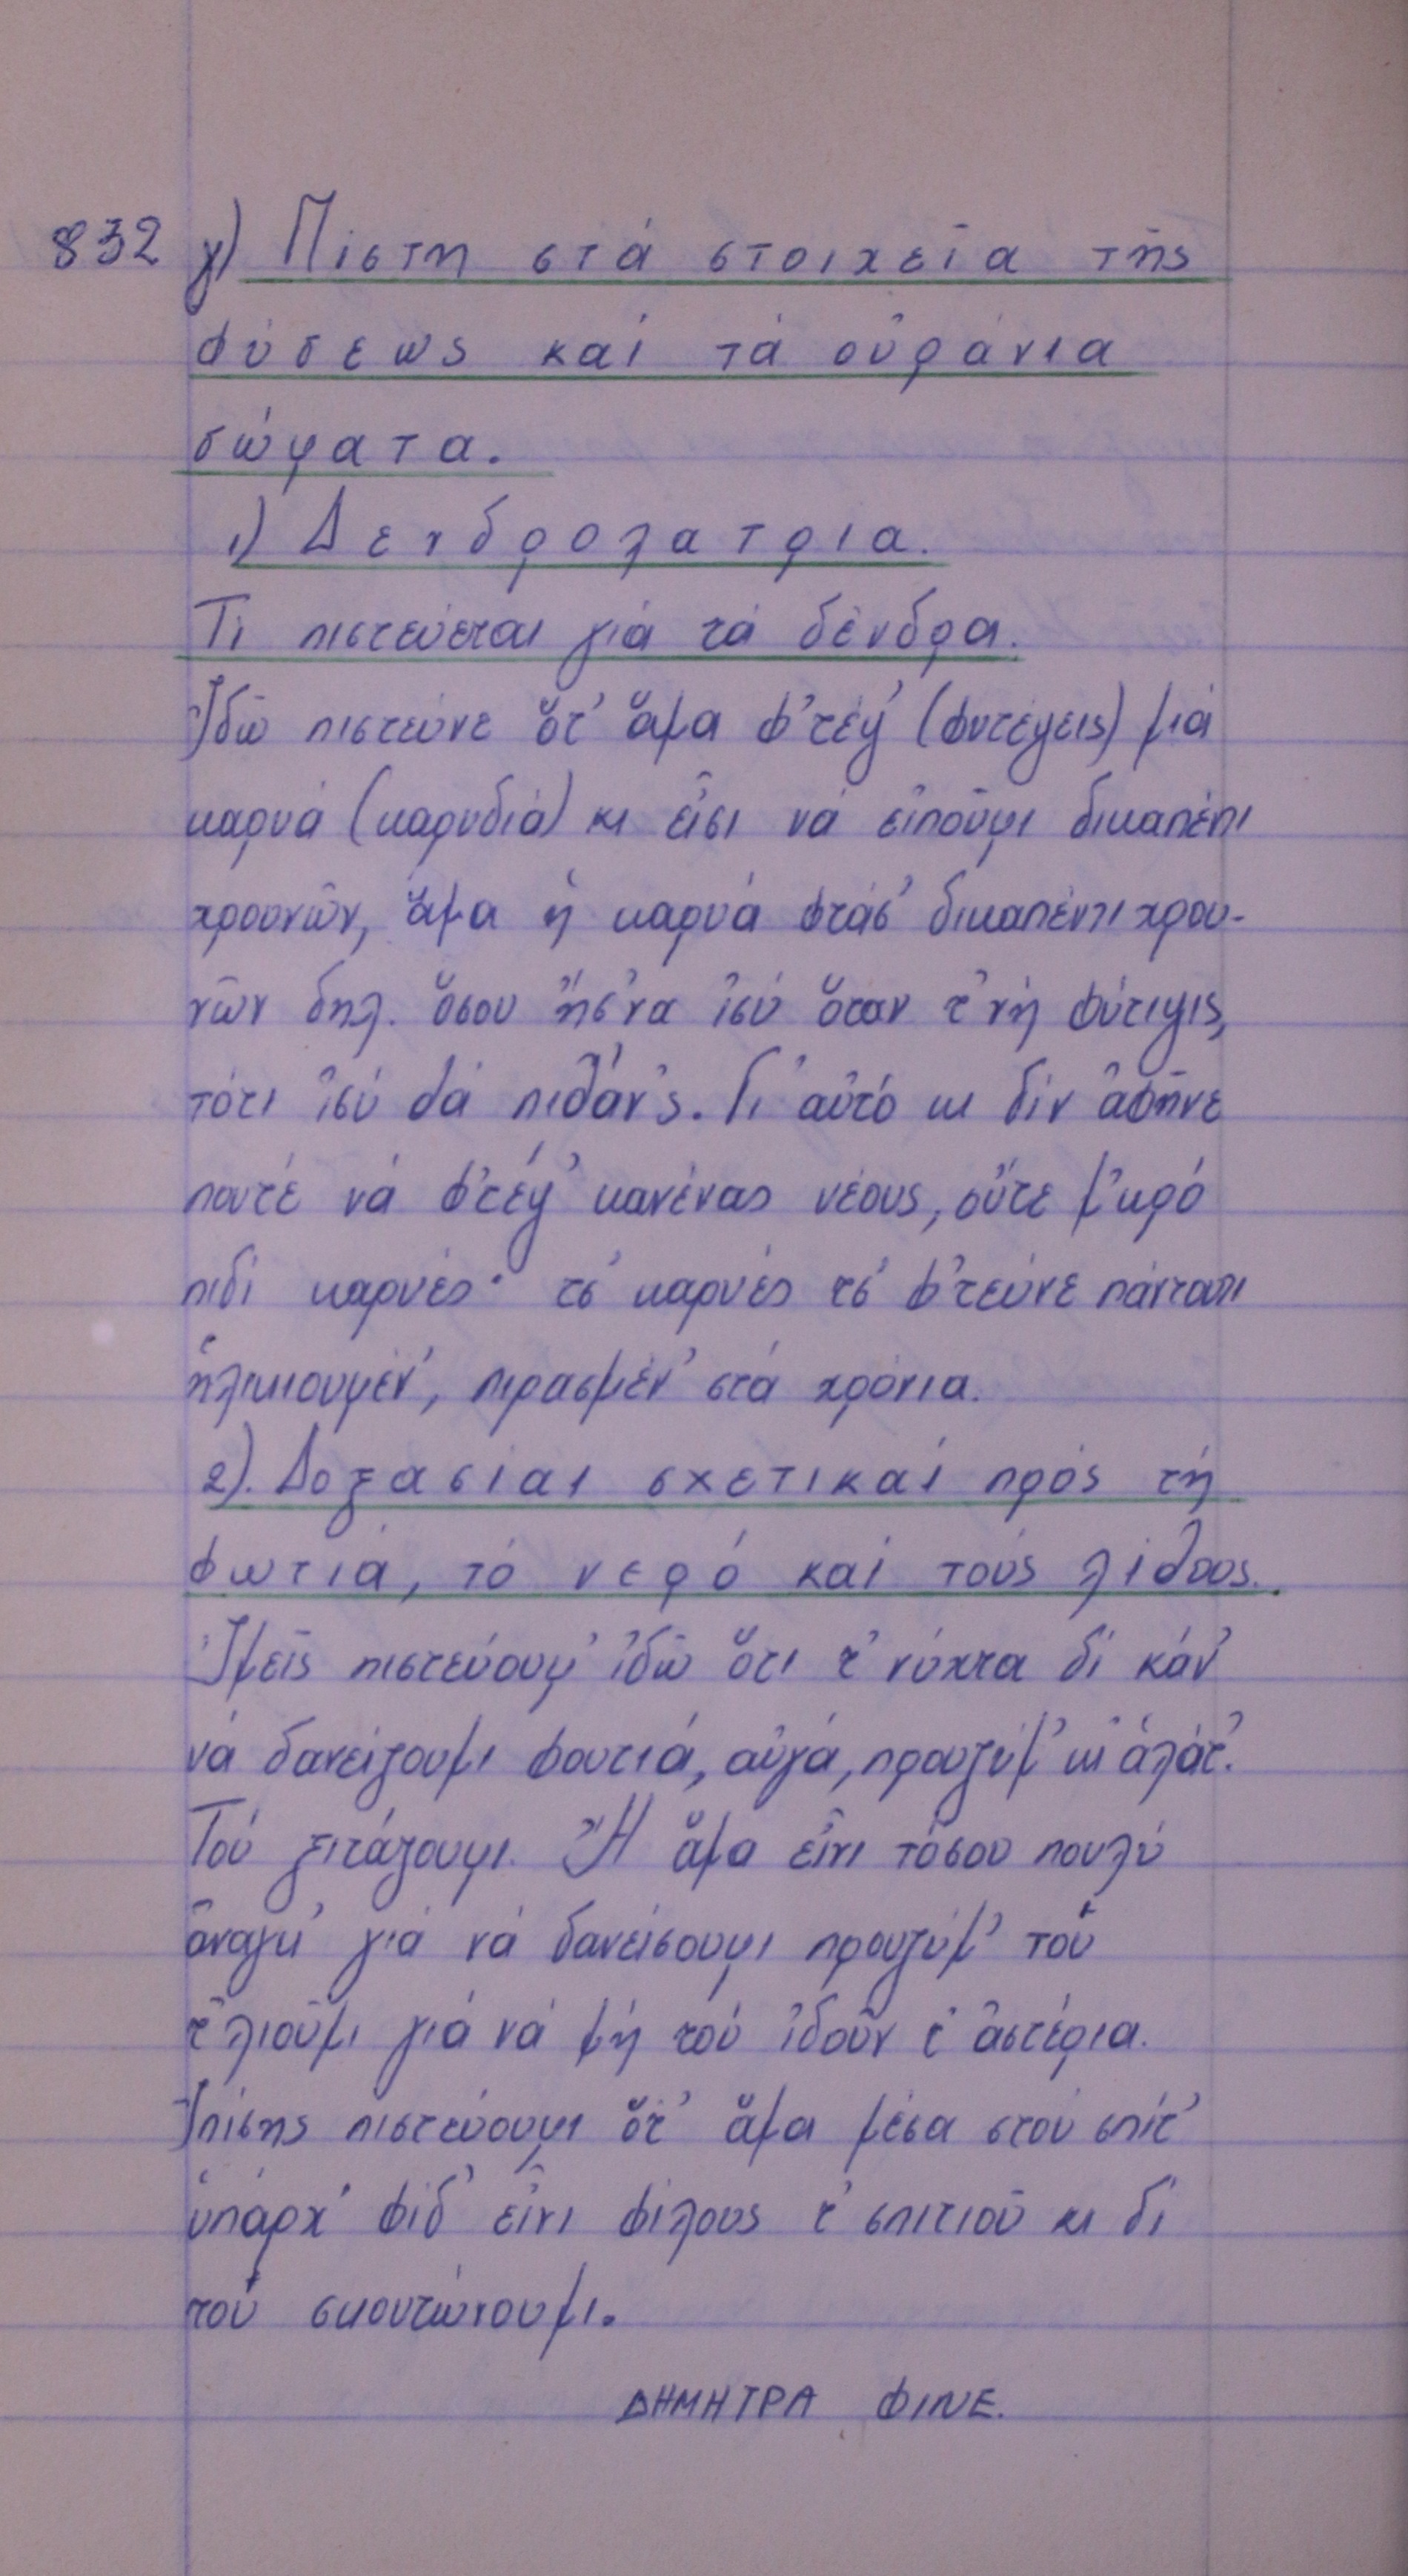 832 γ) Πίστη στά στοιχεῖα τῆς
φύσεως καί τά οὐράνια
σώματα.
1) Δενδρολατρία.
Τί πιστεύεται γιά τά δένδρα.
Ἰδῶ πιστεύνε ὅτ' ἅμα φ'τέψ' (φυτέψεις) μιά
καρυά (καρυδιά) κι εἶσι νά εἰποῦμι δικαπέντι
χρουνῶν, ἅμα ἡ καρυά φτάσ' δικαπέντι χρου-
νῶν δηλ. ὅσου ἤσ'να ἰσύ ὅταν τ'νή φύτιψις,
τότι ἰσύ θά πιθάν'ς. Γι' αὐτό κι δίν ἀφῆνε
πουτέ νά φ'τέψ' κανένας νέους, οὔτε μ'κρό
πιδί καρυές· τσ' καρυές τσ' φ'τεύνε πάντουτι
ἡλικιουμέν', πιρασμέν' στά χρόνια.
2). Δοξασίαι σχετικαί πρός τή
φωτιά, τό νερό καί τούς λίθους.
Ἰμεῖς πιστεύουμ' ἰδῶ ὅτι τ' νύχτα δί κάν'
νά δανείζουμι φουτιά, αὐγά, προυζύμ' κι ἁλάτ'.
Τού ξιτάζουμι. Ἤ ἅμα εἶνι τόσου πουλύ
ἀναγκ' γιά νά δανείσουμι προυζύμ' τού
τ'λιοῦμι γιά νά μή τού ἰδοῦν τ' ἀστέρια.
Ἰπίσης πιστεύουμι ὅτ' ἅμα μέσα στού σπίτ'
ὑπάρχ' φίδ' εἶνι φίλους τ' σπιτιοῦ κι δί
τού σκουτώνουμι.
ΔΗΜΗΤΡΑ ΦΙΝΕ.